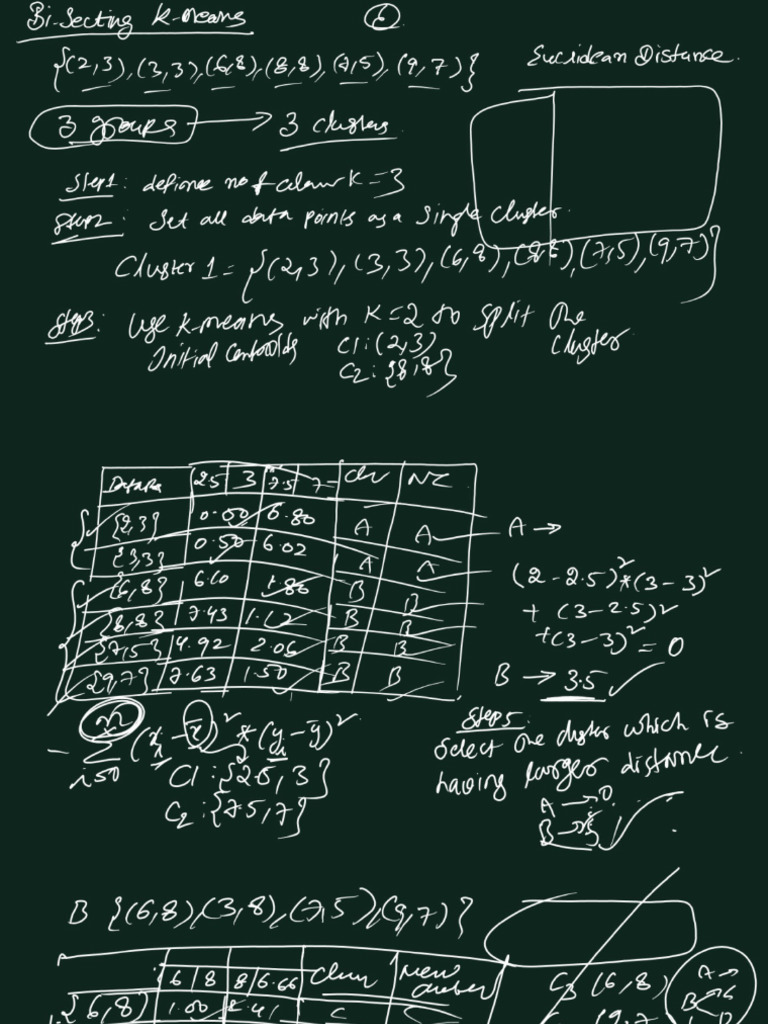 Bi-Secting K-Means
6
{(2,3), (3,3), (6,8), (8,8), (7,5), (9,7)}
Euclidean Distance.
3 groups → 3 clusters
Step1: no of K=3
Step2: Set all data points as a single cluster.
Cluster 1 = {(2,3), (3,3), (6,8), (8,8), (7,5), (9,7)}
Step3: Use K-means with K=2 to split the cluster
Initial Centroids C1: (2,3)
C2: {8,8}
2.5 3 7.5 7 NC
{2,3} 0.50 6.80 A A
{3,3} 0.50 6.02 A A
{6,8} 6.10 1.80 B B
{8,8} 7.43 1.12 B B
{7,5} 4.92 2.06 B B
{9,7} 7.63 1.50 B B
A →
(2-2.5)²*(3-3)²
+ (3-2.5)²
+(3-3)² = 0
B → 3.5
(x-x̄)² * (y-ȳ)²
C1: {2.5, 3}
C2: {7.5, 7}
Step5:
Select the cluster which is
having larger distance.
A → 0
B →
B {(6,8), (3,8), (7,5), (9,7)}
6 8 8 6.66 New
{6,8} 1.00 C
C3 (6,8)
(9,7)
A →
B